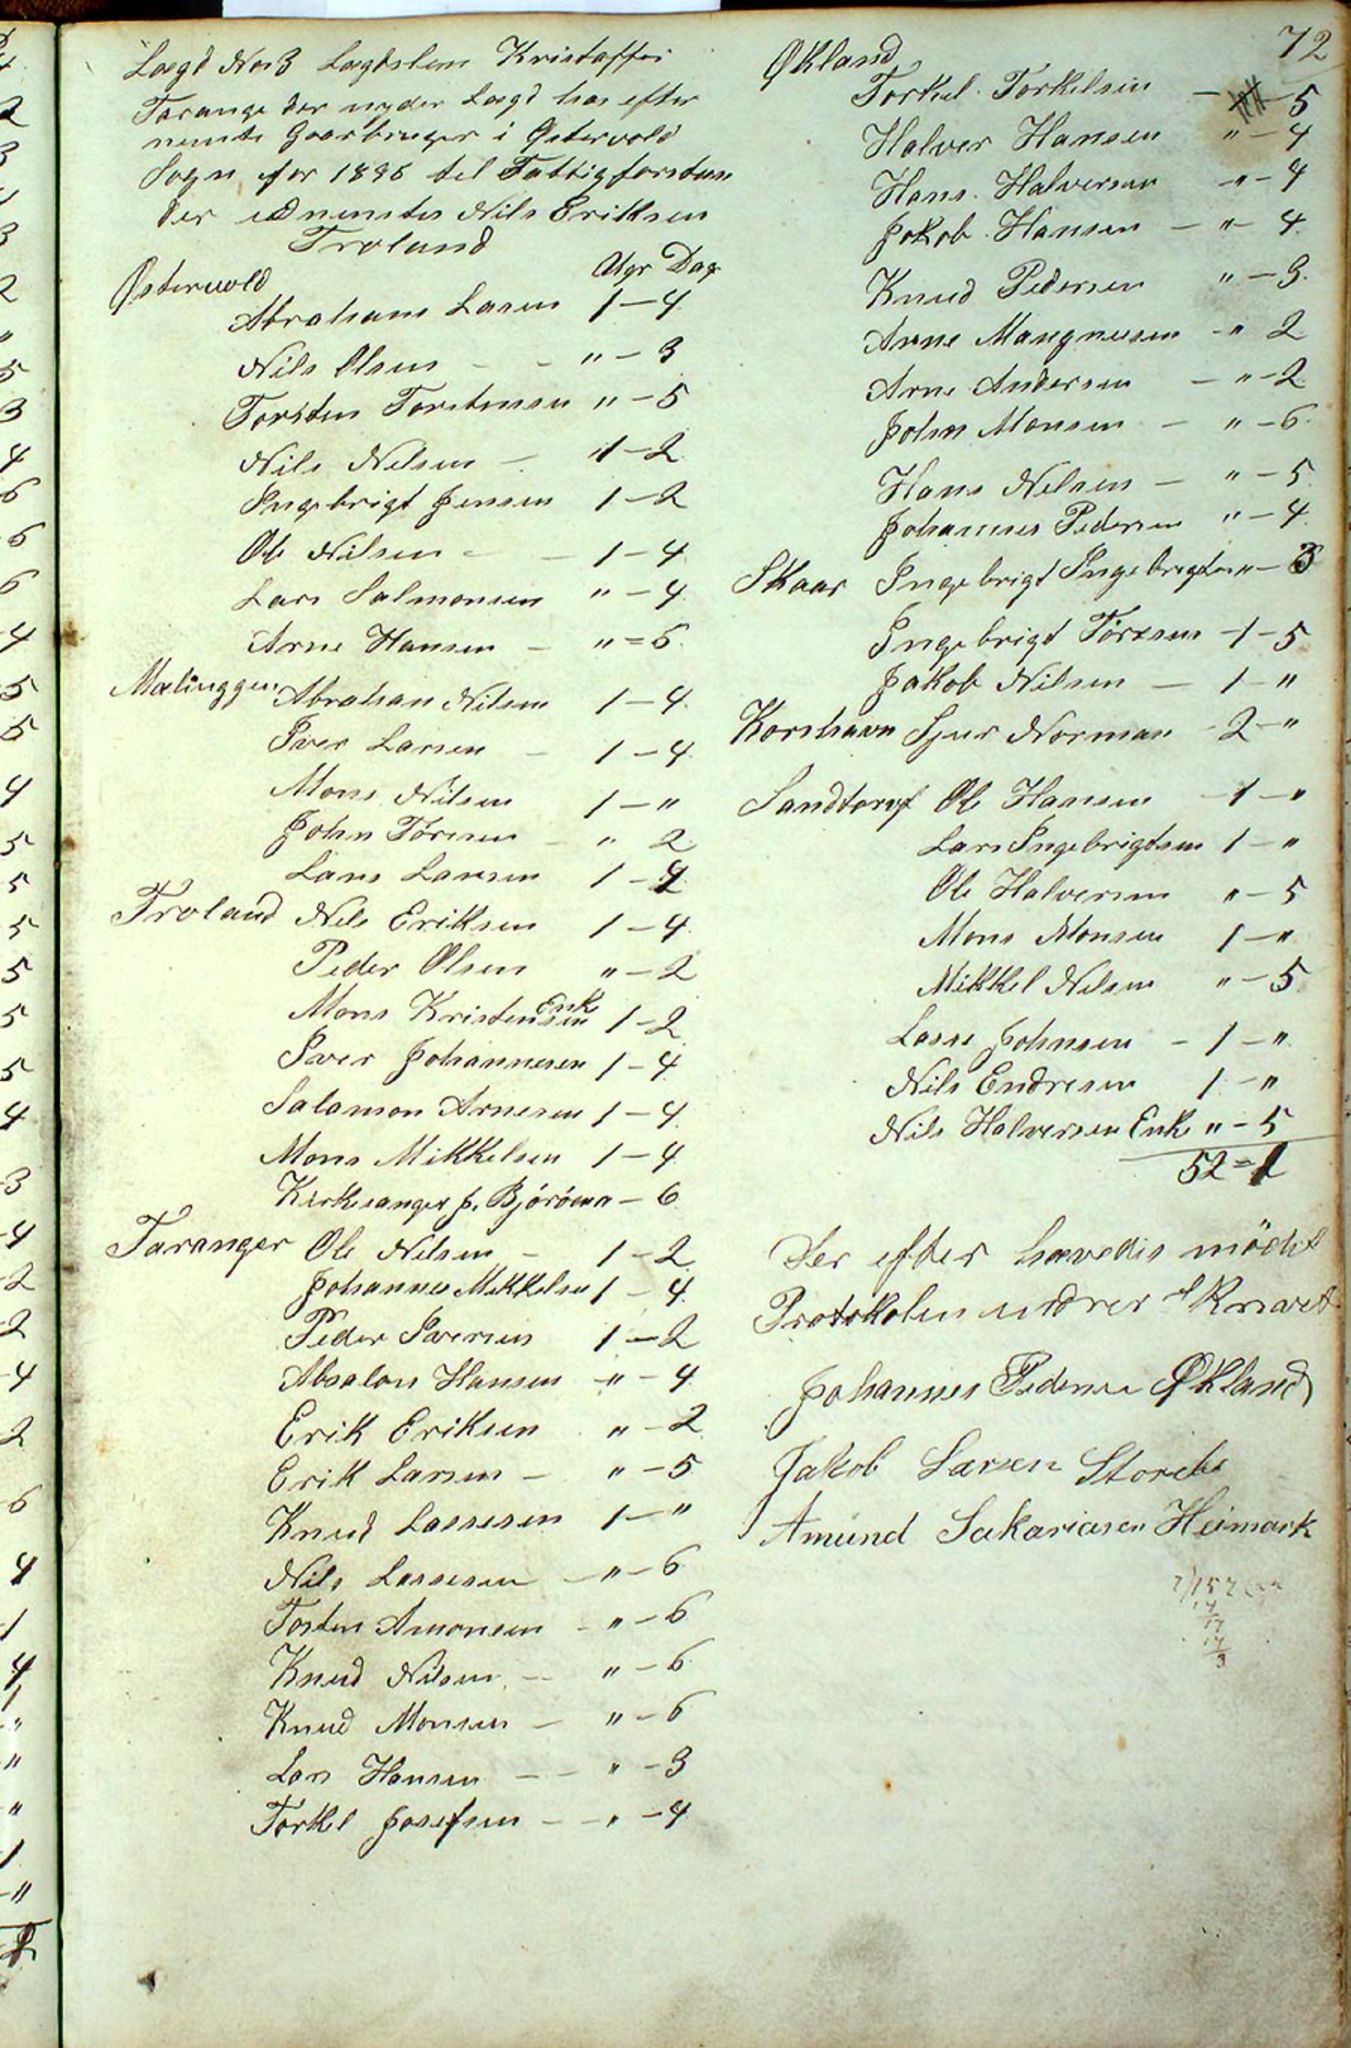 72
Lægd No 3 Lægdslem Kristaffer
Tarange der nyder Lægd hos efter
nemte Gaarbruger i Østervold
Sogn for 1896 til Fattigforstan
der udnemtes Nils Eriksen
Troland
Uger Dag
Østervold
Abraham Larsen 1 – 4
Nils Olsen – – " – 3
Torsten Torstensen " – 5
Nils Nilsen – 1 – 2
Ingebrigt Jensen 1 – 2
Ole Nilsen – – 1 – 4
Lars Salmonsen " – 4
Arne Hansen – " = 6
Mælinggen Abraham Nilsen 1 – 4
Iver Larsen – 1 – 4
Mons Nilsen 1 – "
John Törresen – " 2
Lars Larsen 1 –
Troland Nils Eriksen 1 – 4
Peder Olsen " – 2
Mons Kristensen Enke 1 – 2
Iver Johannesen 1 – 4
Salamon Arnesen 1 – 4
Mons Mikkelsen 1 – 4
Kirkesanger J. – 6
Taranger Ole Nilsen – 1 – 2
Johannes Mikkelsen 1 – 4
Peder Iversen 1 – 2
Absalon Hansen – " – 4
Erik Eriksen " – 2
Erik Larsen – " – 5
Knud Lassesen 1 – "
Nils Lassesen – " – 6
Torsten Amonsen – " – 6
Knud Nilsen – " – 6
Knud Monsen – " – 6
Lars Hansen – – " – 3
Torkel Josefsen – – " – 4
Økland
Torkel Torkelsen – – 5
Halver Hansen " – 4
Hans Halversen – " – 4
Jakob Hansen – " – 4
Knud Pedersen " – 3
Arne Mangnusen – " 2
Arne Andersen – " – 2
John Monsen – " – 6
Hans Nilsen – " – 5
Johannes Pedersen " – 4
Skaar Ingebrigt Ingebrigtsen " – 3
Ingebrigt Törresen – 1 – 5
Jakob Nilsen – 1 – "
Korshavn Sjur Norman – 2 – "
Sandtorv Ole Hansen – 1 – "
Lars Ingebrigtsen 1 – "
Ole Halversen " – 5
Mons Monsen 1 – "
Mikkel Nilsen " – 5
Lasse Johnsen – 1 – "
Nils Endresen 1 – "
Nils Halversen Enke " – 5
52 = 1
Der efter hævedes mödet
Protokolen
Johannes Pedersen Økland
Jakob Larsen Storebø
Amund Sakariasen Heimark